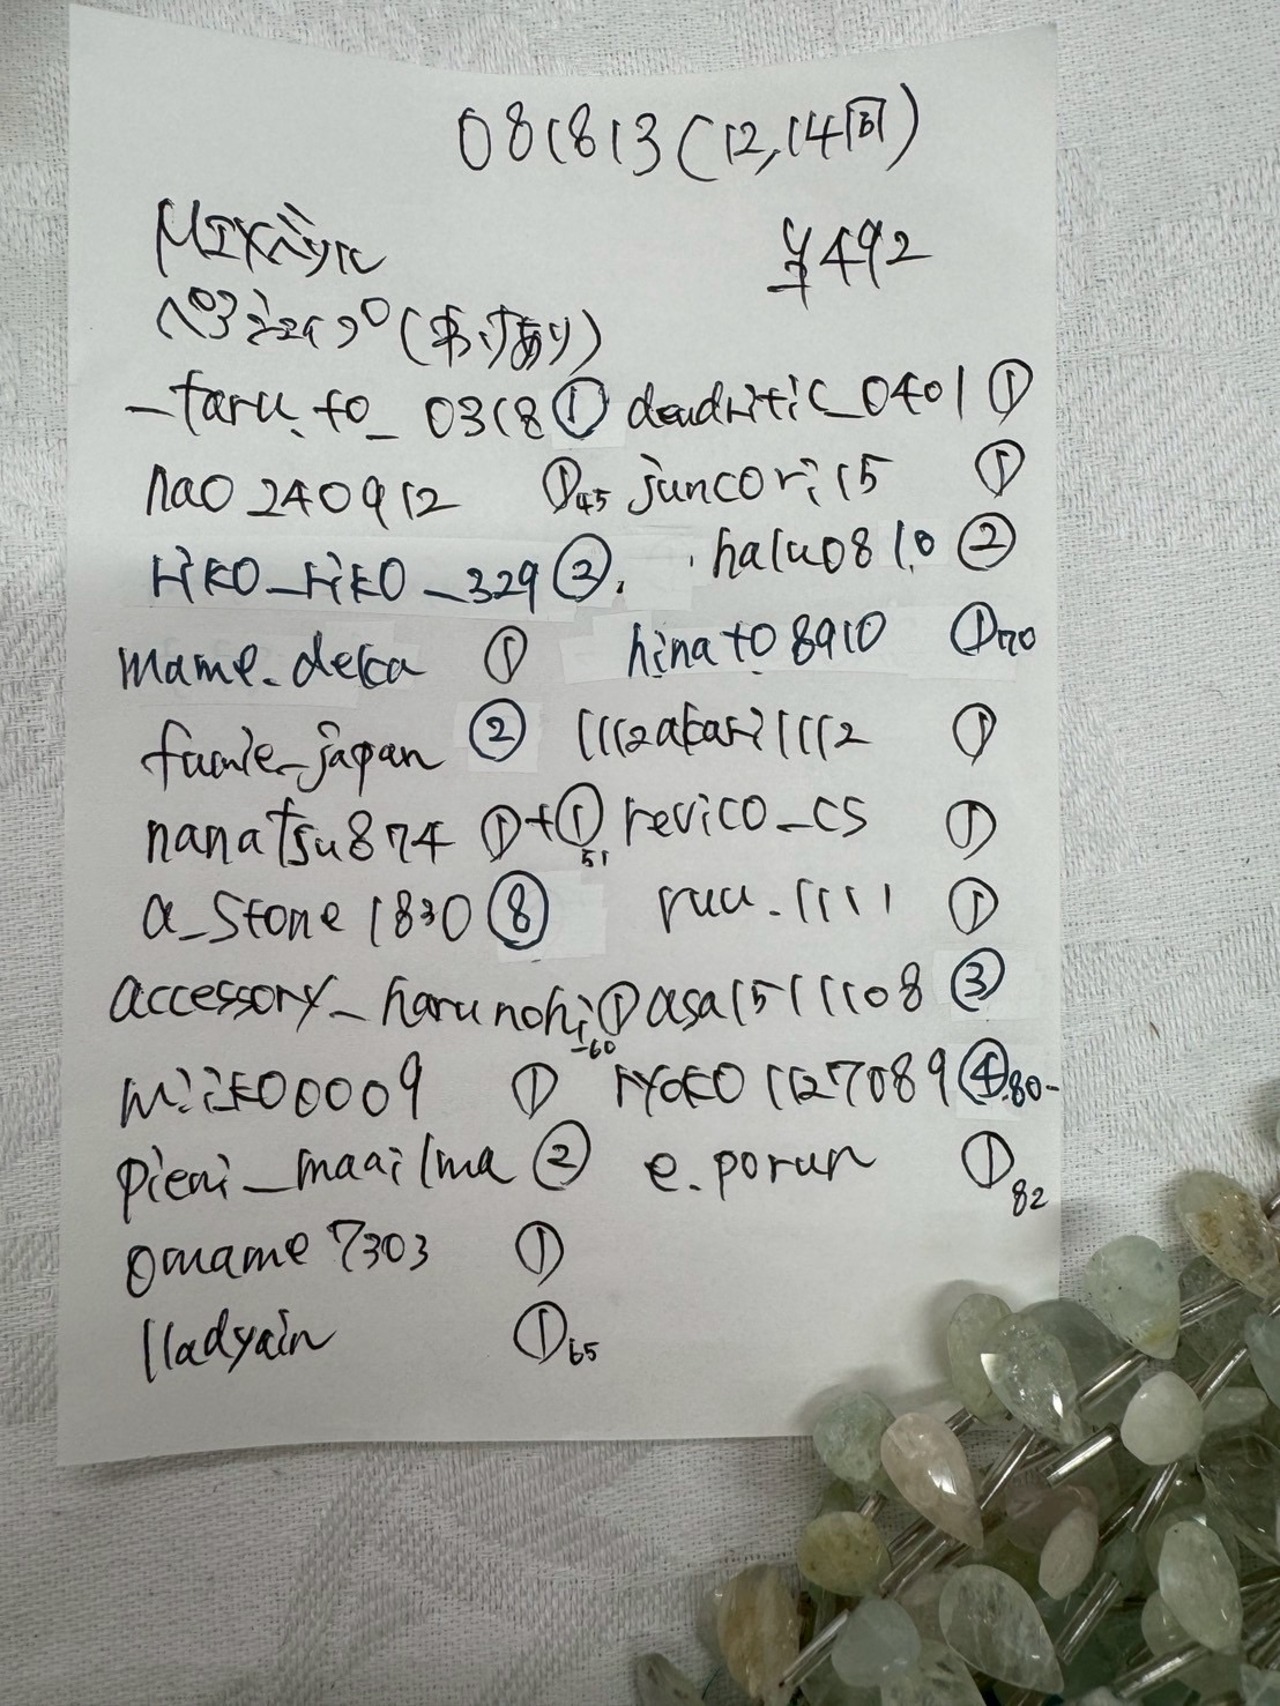 081813(12,14同)
MIX ¥492
(穴あり)
_taru.to_0318 ① dendritic_0401 ①
nao240912 ①45 juncori15 ①
riko_riko_329 ② halu0810 ②
mame.deka ① hinato8910 ①70
fumie_japan ② 1112akari1112 ①
nanatsu874 ①+①51 revico_cs ①
a_stone1830 ⑧ ruu.1111 ①
accessory_harunohi ①-60 asa15111108 ③
miiko0009 ① ryoko1127089 ④80-
pieni_maailma ② e.porun ①82
omame7303 ①
lladyain ①65